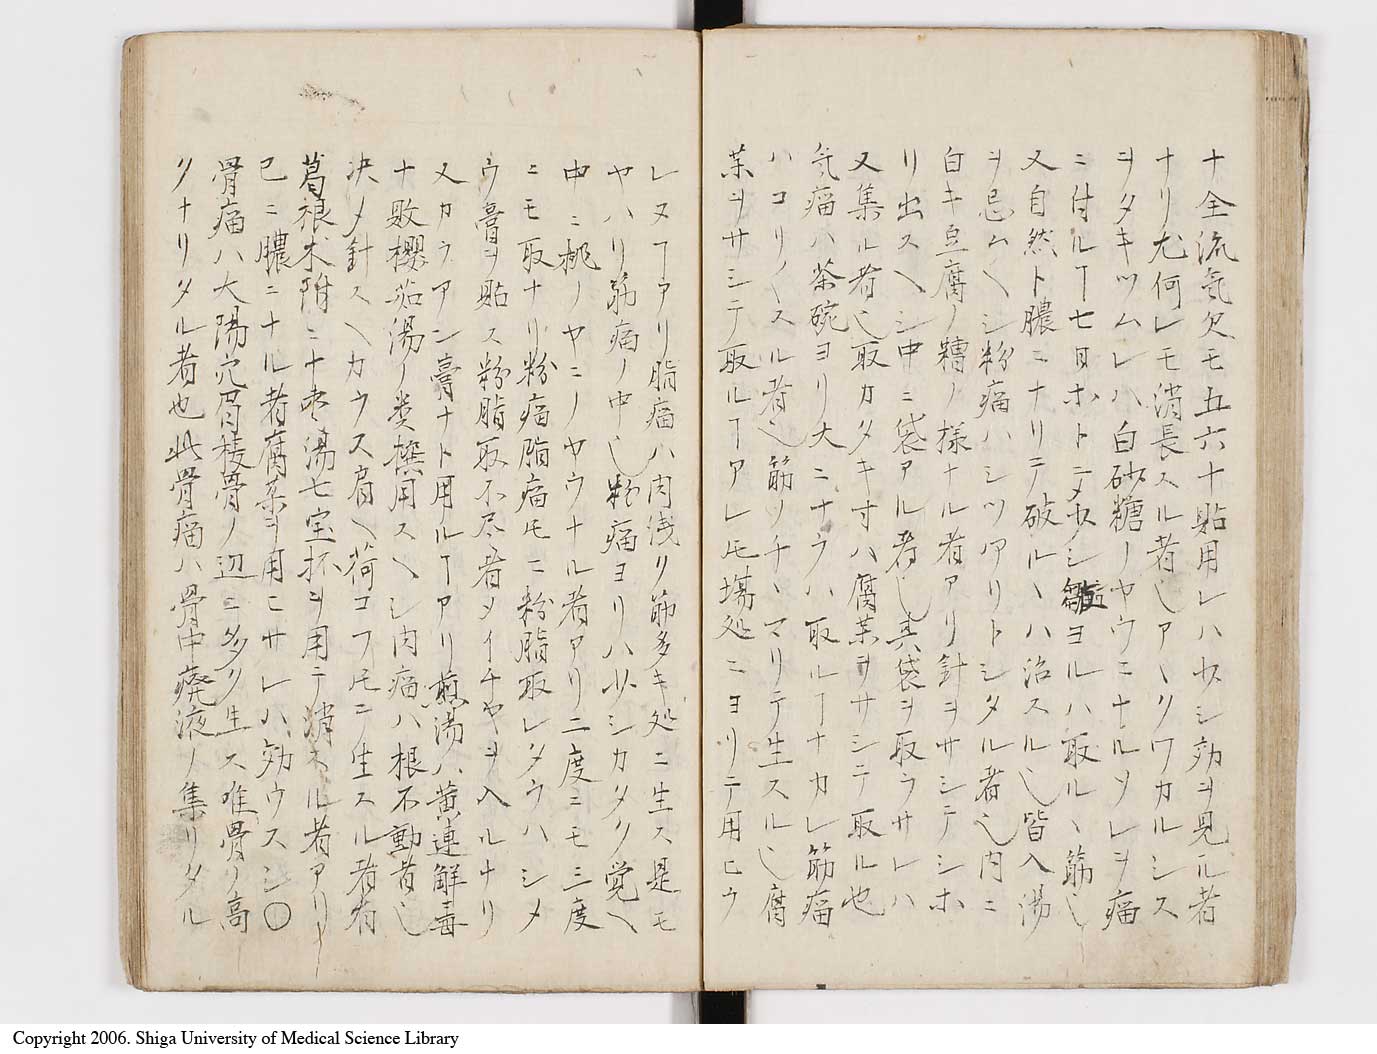 十全流気欠モ五六十貼用レハヤシ効ヲ見ル者
ナリ尤何レモ消長スル者乄アヽクワカルシス
ヲタキツムレハ白砂糖ノヤウニナルソレヲ瘤
ニ付ルヿ七日ホトニ シ ヨルハ取ルヽ筋
又自然ト膿ニナリテ破ルヽハ治スル乄皆入湯
ヲ忌ムヘシ粉瘤ハシツアリトシタル者乄内ニ
白キ豆腐ノ糟ノ様ナル者アリ針ヲサシテシホ
リ出スヘシ中ニ袋アル者乄其袋ヲ取ラサレハ
又集ル者乄取カタキ寸ハ腐薬ヲサシテ取ル也
気瘤ハ茶碗ヨリ大ニナラハ取ルヿナカレ筋瘤
ハコリ〱スル者乄筋ソチヽマリテ生スル乄腐
薬ヲサシテ取ルヿアレ𪜈場処ニヨリテ用ヒラ
レヌヿアリ脂瘤ハ肉浅リ筋多キ処ニ生ス是モ
ヤハリ筋瘤ノ中乄粉瘤ヨリハ少シカタク覚ヘ
中ニ桃ノヤニノヤウナル者アリ二度ニモ三度
ニモ取ナリ粉瘤脂瘤𪜈ニ粉脂取レタラハシメ
ウ膏ヲ貼ス粉脂取不尽者メイチヤヲ入ルナリ
又カラアン膏ナト用ルヿアリ煎湯ハ黄連解毒
ナ敗櫻茄湯ノ類撰用スヘシ肉瘤ハ根不動者乄
決メ針スヘカラス肩ヘ荷コフ𪜈ニ生スル者有
葛根朮附ニ十棗湯七宝杯ヲ用テ消スル者アリ
已ニ膿ニナル者腐薬ヲ用ニサレハ効ウスシ〇
骨瘤ハ大陽穴眉棱骨ノ辺ニ多ク生ス唯骨ノ高
クナリタル者也此骨瘤ハ骨中癈液ノ集リタル
Copyright 2006. Shiga University of Medical Science Library